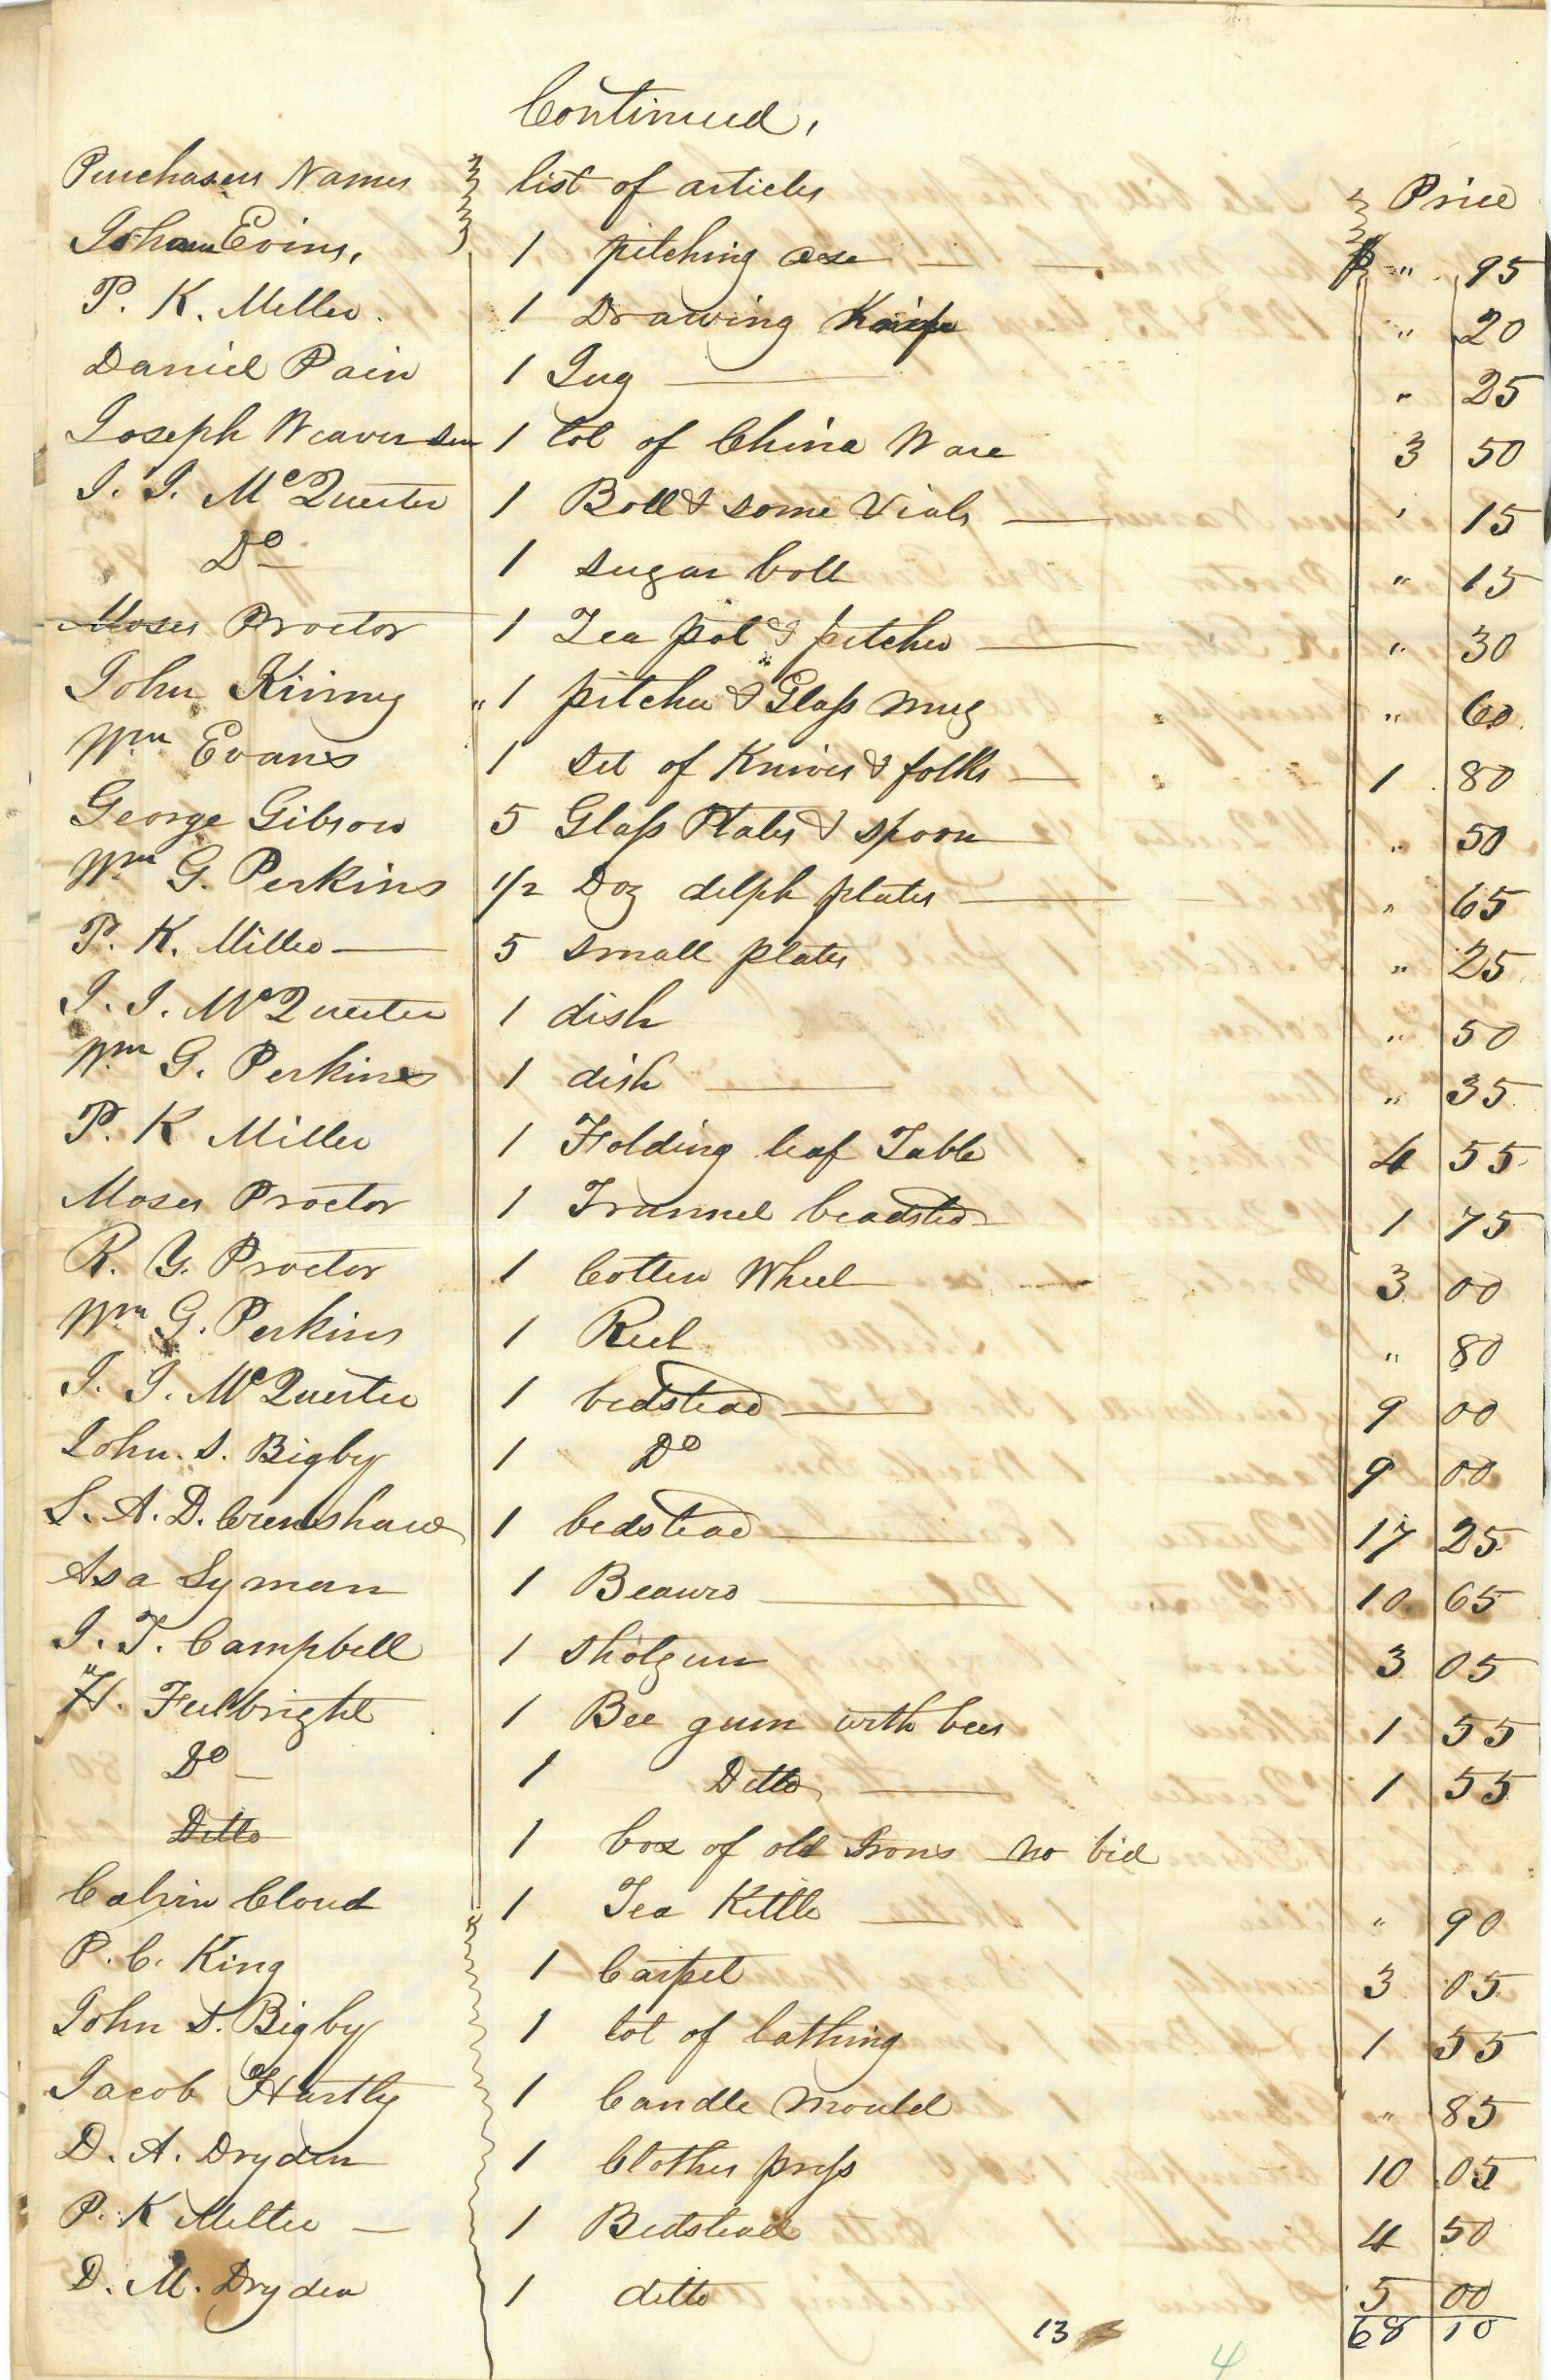 Continued,
Purchasers Names list of articles Price
John Evins, 1 pitching axe $ " 95
P. K. Miller 1 Drawing Knife " 20
Daniel Pain 1 Jug " 25
Joseph Weaver Sen 1 lot of China Ware 3 50
J. J. McQuerter 1 Boll & some Vials " 15
Do 1 sugar boll " 15
Moses Proctor 1 Tea pot & pitcher " 30
John Kinny " 1 pitcher & Glass Mug " 60
Wm Evans 1 set of Knives & folks 1 80
George Gibson 5 Glass Plates & spoon " 50
Wm G. Perkins 1/2 Doz delph plates " 65
P. K. Miller 5 small plates " 25
J. J. McQuerter 1 dish " 50
Wm G. Perkins 1 dish " 35
P. K Miller 1 Folding leaf Table 4 55
Moses Proctor 1 Trunnel beadsted 1 75
R. Y. Proctor 1 Cotten Wheel 3 00
Wm G. Perkins 1 Reel " 80
J. J. McQuerter 1 bedstead 9 00
John. S. Bigby 1 Do 9 00
L. A. D. Crenshaw 1 bedstead 17 25
Asa Lyman 1 Beauro 10 65
J. T. Campbell 1 shotgun 3 05
H. Fulbright 1 Bee gum with bees 1 55
Do 1 Ditto 1 55
Ditto 1 box of old Irons no bid
Calvin Cloud 1 Tea Kittle " 90
P. C. King 1 Carpet 3 05
John S. Bigby 1 lot of lathing 1 55
Jacob Hartly 1 Candle Mould " 85
D. A. Dryden 1 Clothes press 10 05
P. K Miller 1 Bedstead 4 50
D. M. Dryden 1 ditto 5 00
13 68 10
4